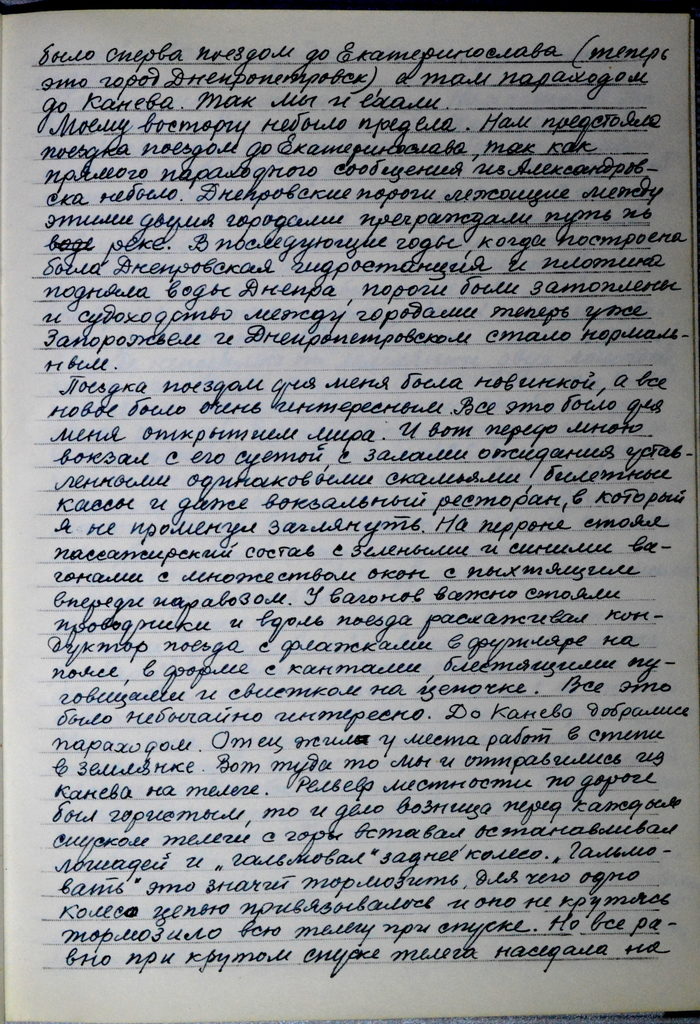 было сперва поездом до Екатеринослава (теперь
это город Днепропетровск) а там параходом
до Канева. Так мы и ехали.
Моему восторгу небыло предела. Нам предстояла
поездка поездом до Екатеринослава, так как
прямого параходного сообщения из Александров-
ска небыло. Днепровские пороги лежащие между
этими двумя городами преграждали путь по
воде реке. В последующие годы, когда построена
была Днепровская гидростанция и плотина
подняла воды Днепра, пороги были затоплены
и судоходство между городами теперь уже
Запорожьем и Днепропетровском стало нормаль-
ным.
Поездка поездом для меня была новинкой, а все
новое было очень интересным. Все это было для
меня открытием мира. И вот передо мною
вокзал с его суетой, с залами ожидания устав-
ленными одинаковыми скамьями, билетные
кассы и даже вокзальный ресторан, в который
я не променул заглянуть. На перроне стоял
пассажирский состав с зелеными и синими ва-
гонами с множеством окон с пыхтящим
впереди паравозом. У вагонов важно стояли
проводники и вдоль поезда расхаживал кон-
дуктор поезда с флажками в футляре на
поясе, в форме с кантами, блестящими пу-
говицами и свистком на цепочке. Все это
было небычайно интересно. До Канева добрались
параходом. Отец жил у места работ в степи
в землянке. Вот туда то мы и отправились из
Канева на телеге. Рельеф местности по дороге
был гористым, то и дело возница перед каждым
спуском телеги с горы вставал останавливал
лошадей и „гальмовал" заднее колесо. „Гальмо-
вать" это значит тормозить, для чего одно
колесо цепью привязывалось и оно не крутясь
тормозило всю телегу при спуске. Но все ра-
вно при крутом спуске телега наседала на